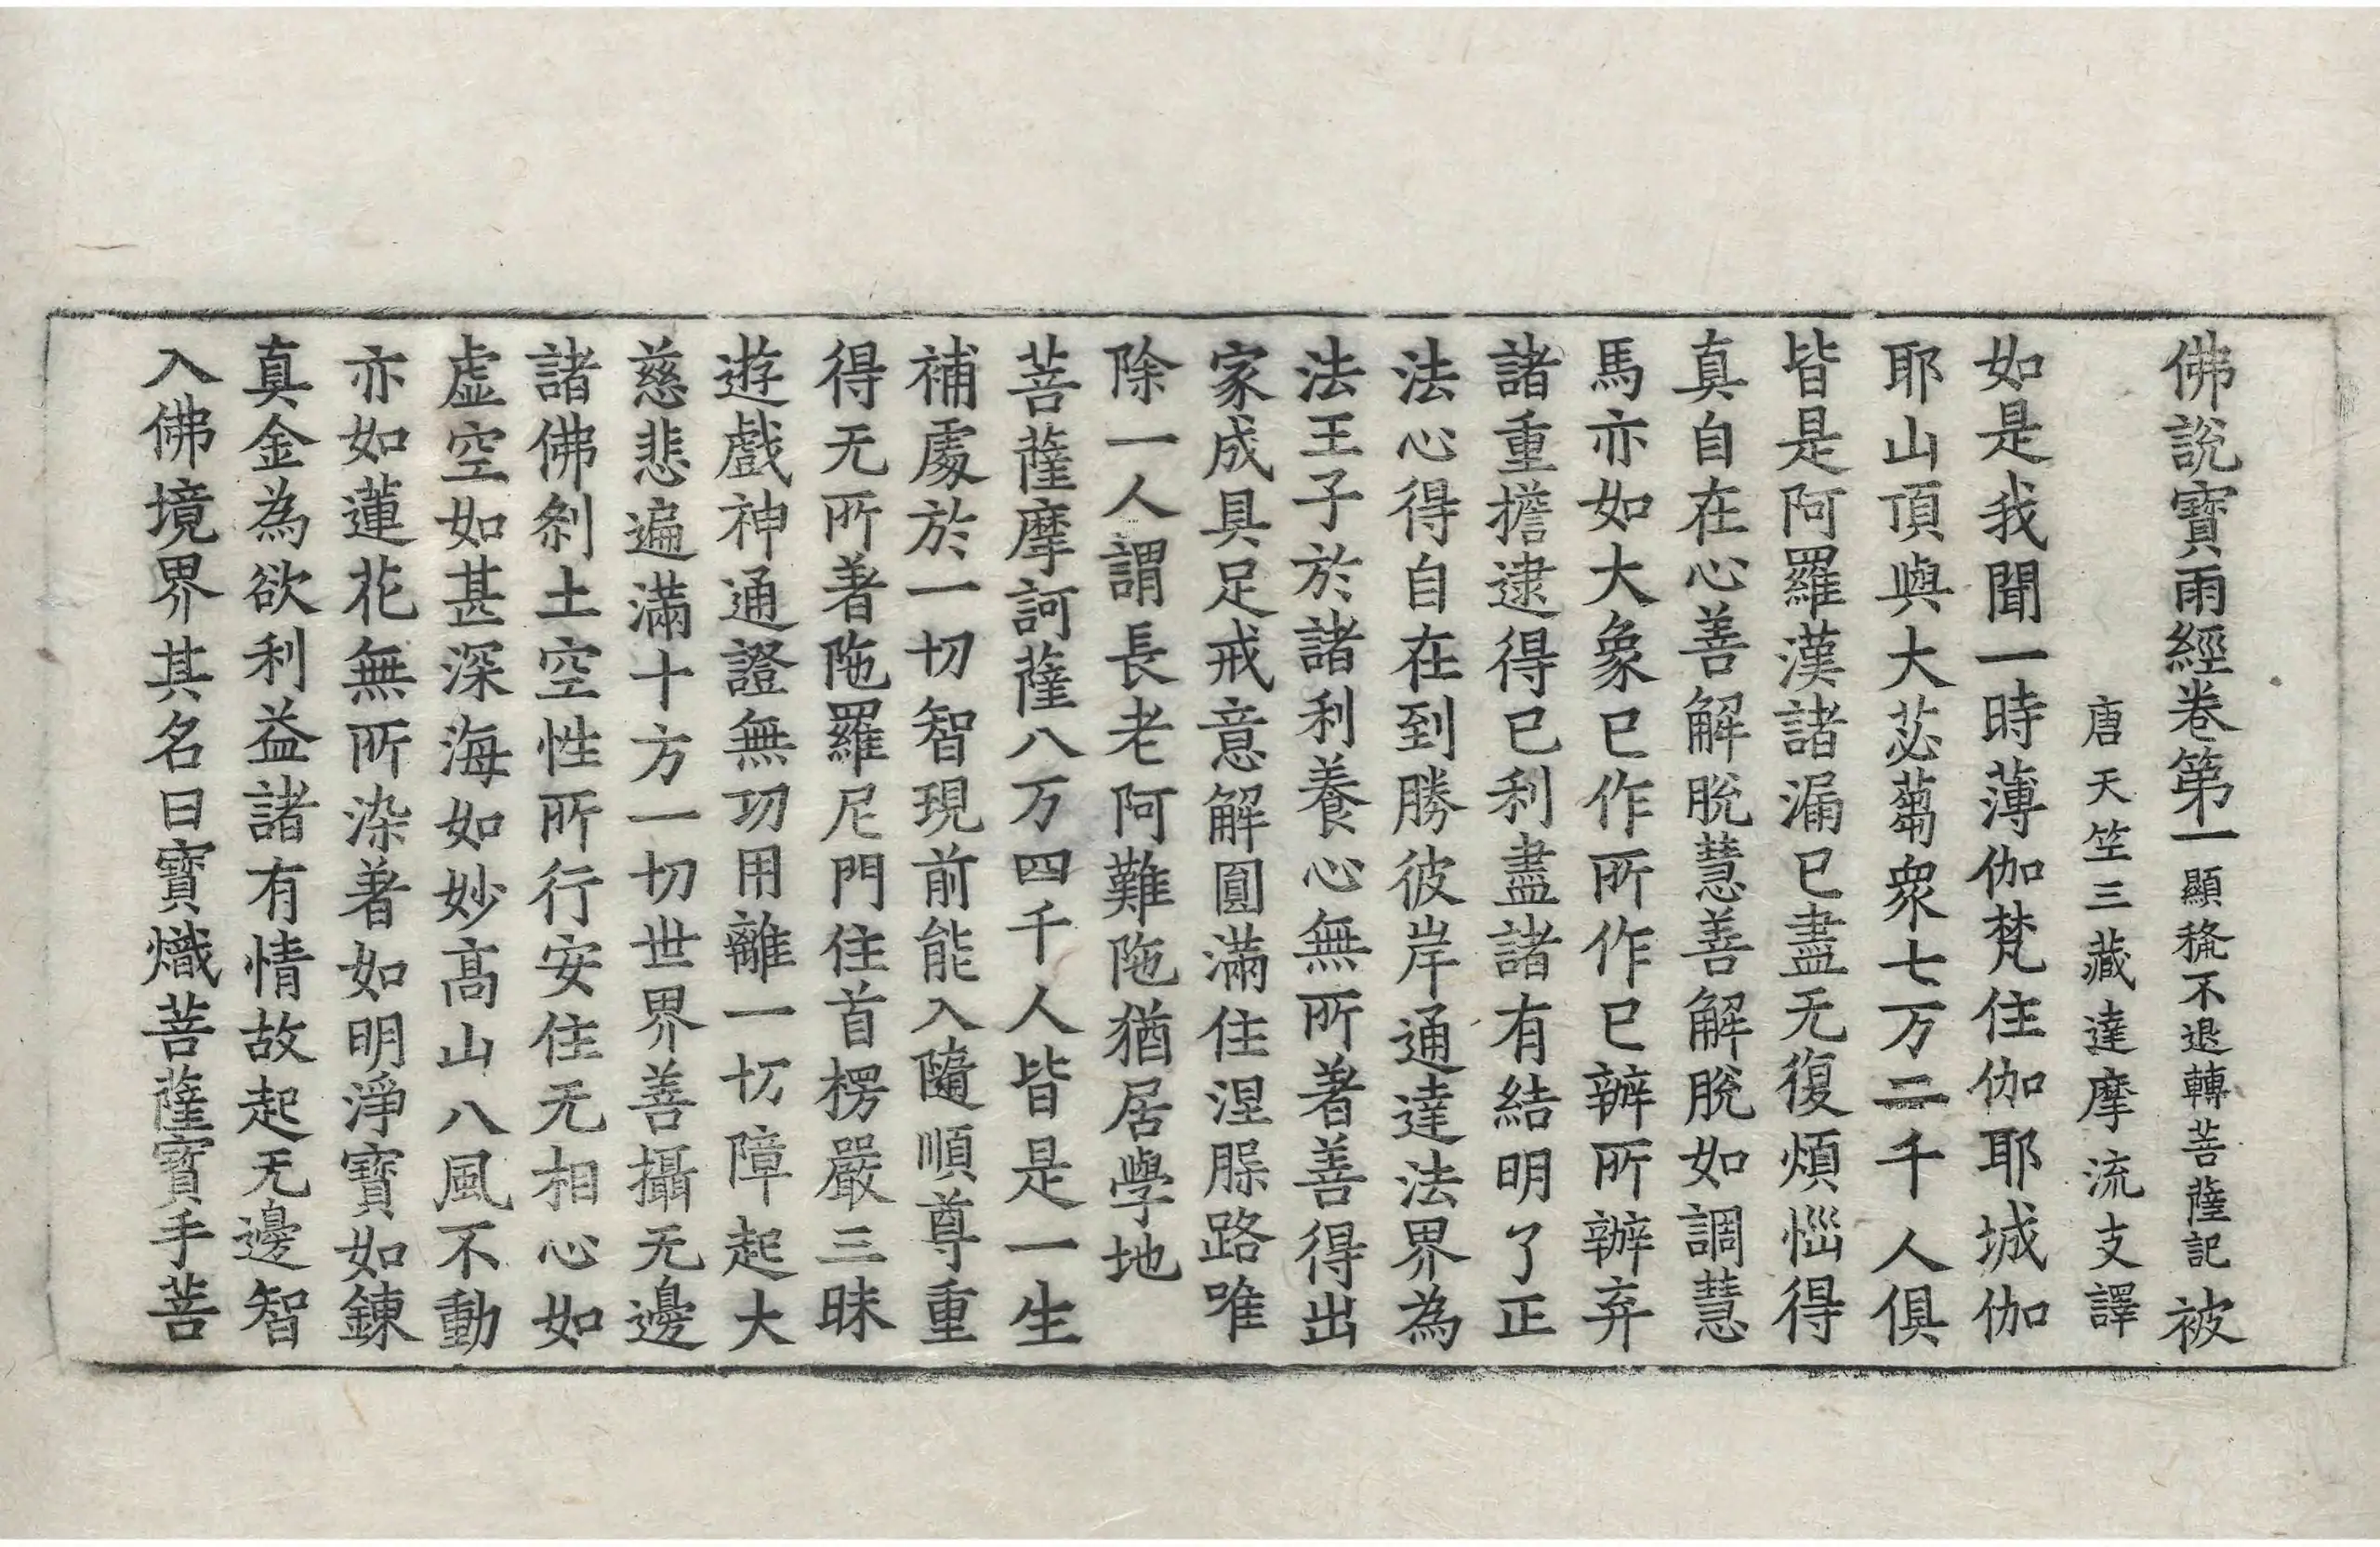 佛說寶雨經卷第一顯授不退轉菩薩記 被
唐天竺三藏達摩流支譯
如是我聞一時薄伽梵住伽耶城伽
耶山頂與大苾蒭衆七万二千人俱
皆是阿羅漢諸漏已盡无復煩惱得
真自在心善解脫慧善解脫如調慧
馬亦如大象已作所作已辦所辦弃
諸重擔逮得已利盡諸有結明了正
法心得自在到勝彼岸通達法界為
法王子於諸利養心無所著善得出
家成具足戒意解圓滿住涅槃路唯
除一人謂長老阿難陁猶居學地
菩薩摩訶薩八万四千人皆是一生
補處於一切智現前能入隨順尊重
得无所著陁羅尼門住首楞嚴三昧
遊戲神通證無功用離一切障起大
慈悲遍滿十方一切世界善攝无邊
諸佛剎土空性所行安住无相心如
虛空如甚深海如妙高山八風不動
亦如蓮花無所染著如明淨寶如鍊
真金為欲利益諸有情故起无邊智
入佛境界其名曰寶熾菩薩寶手菩